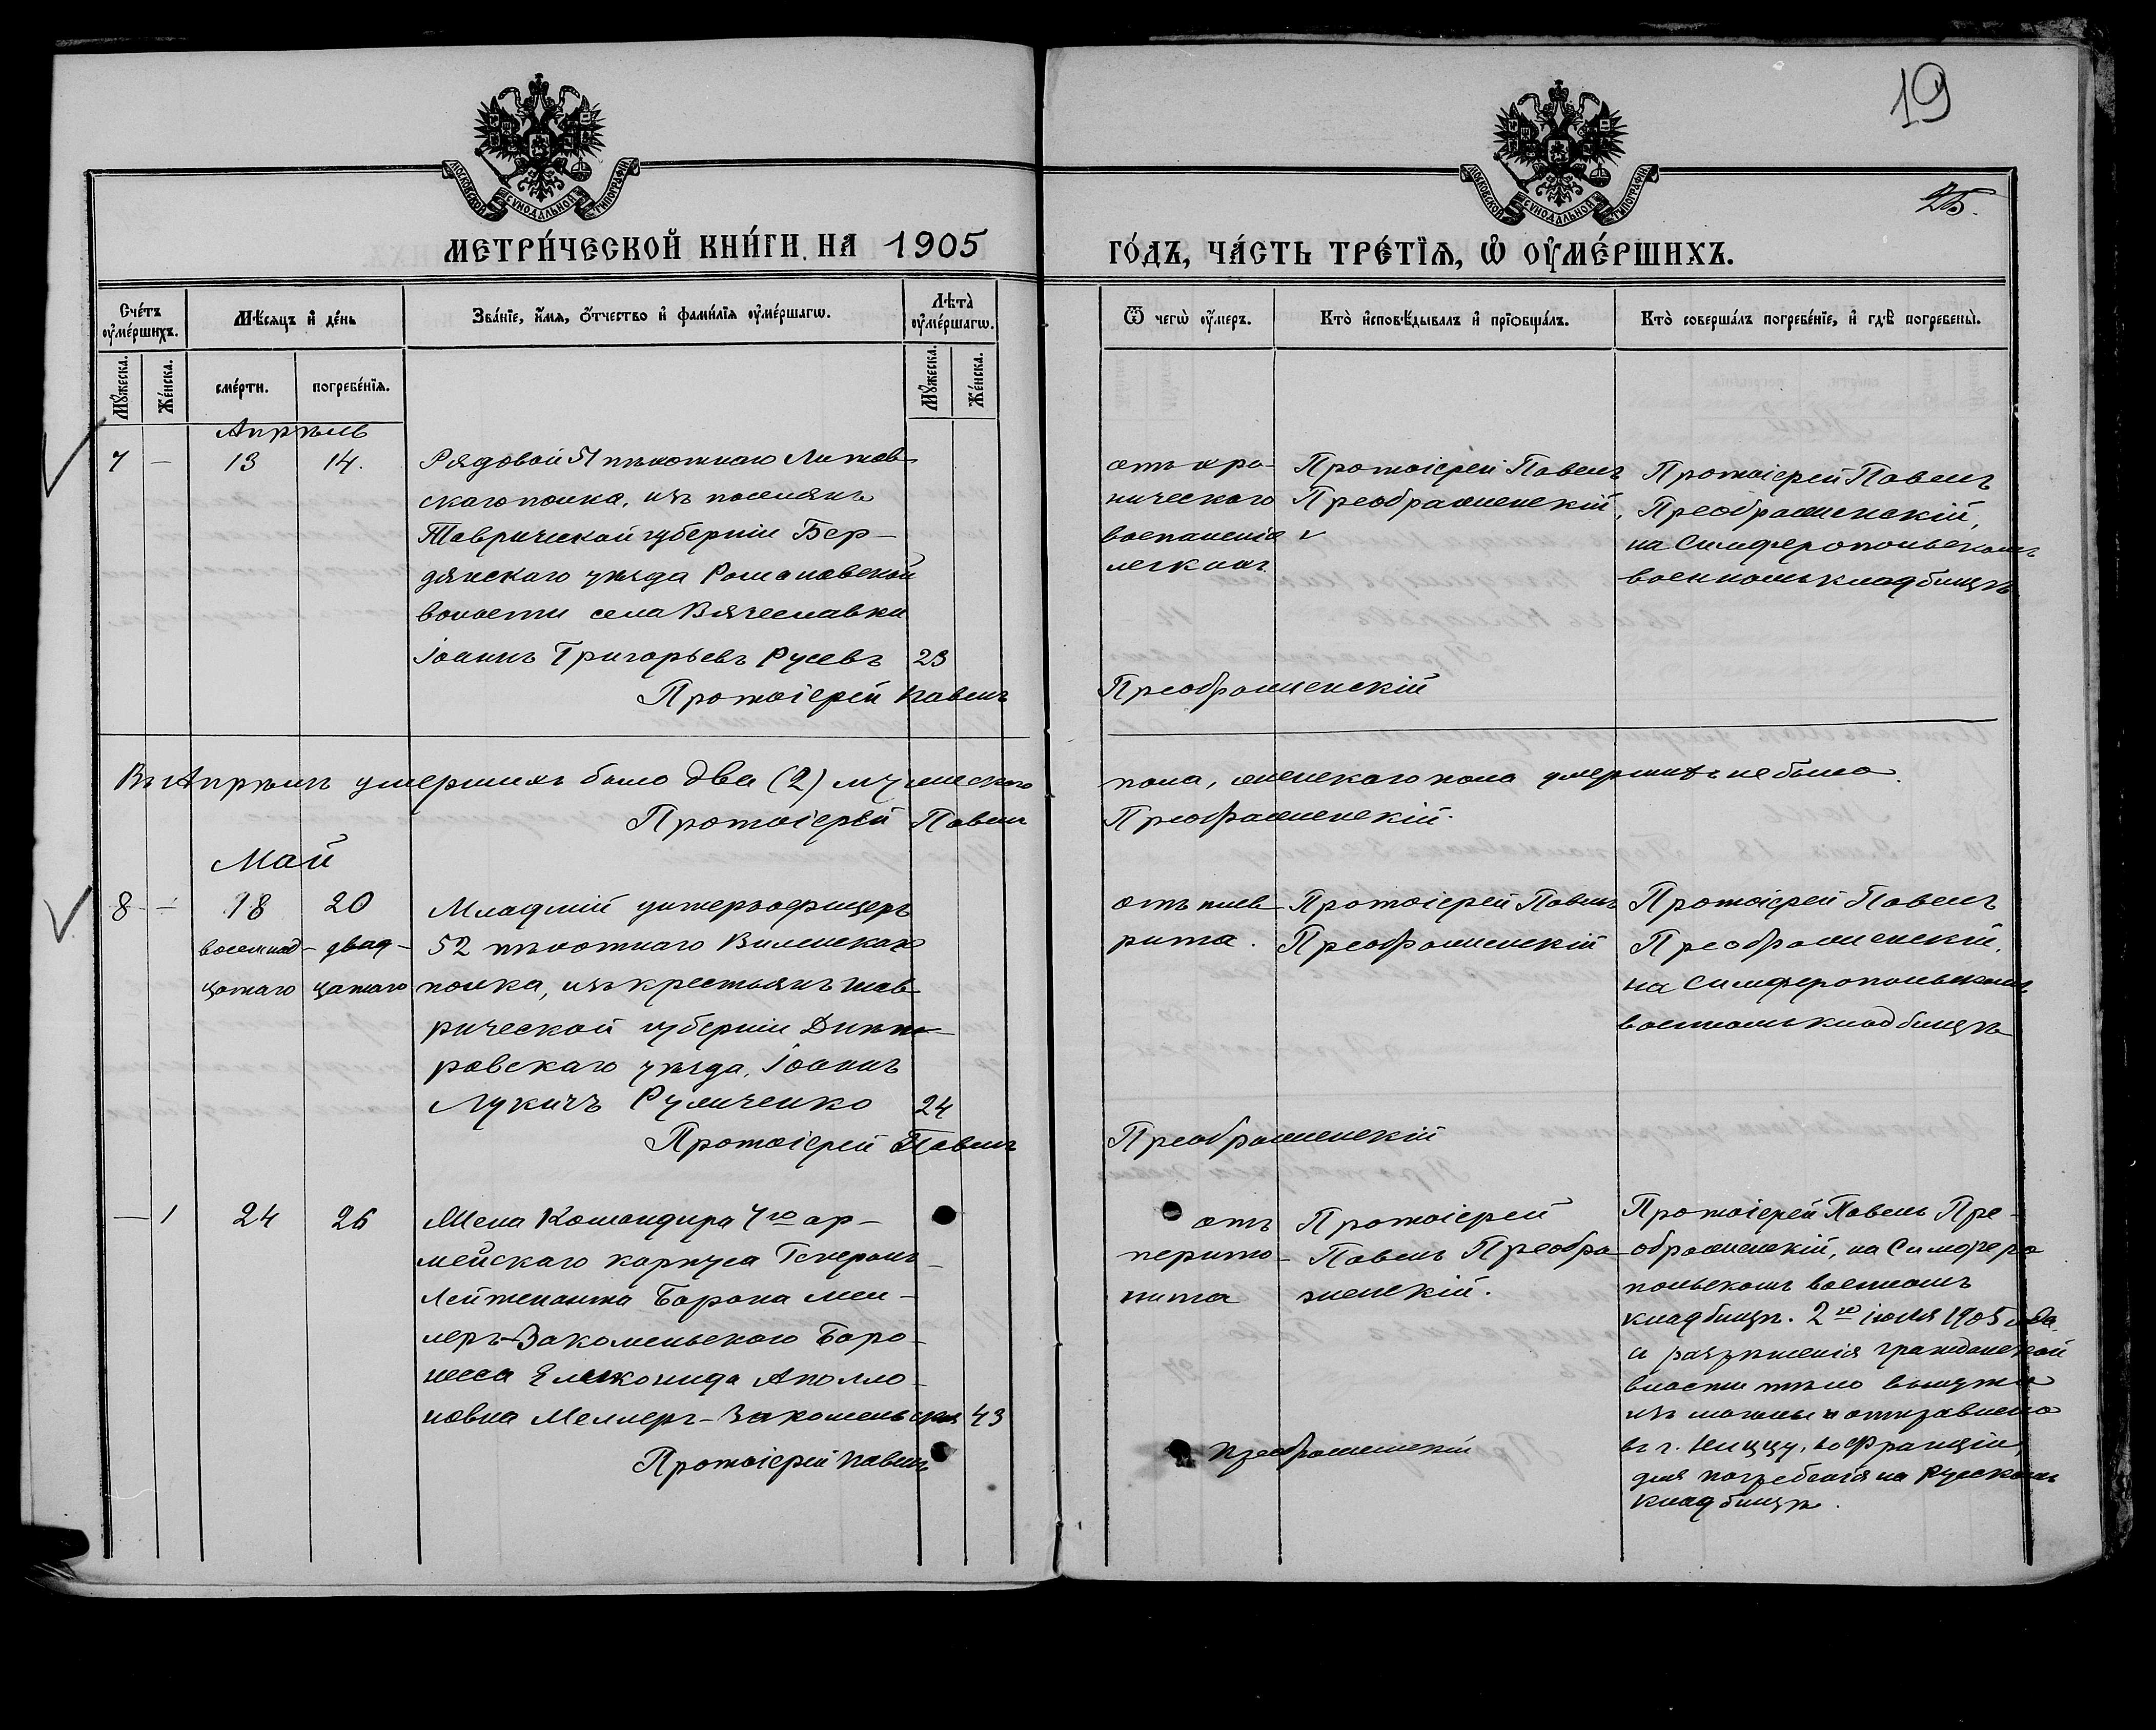 19
25.
МОСКОВСКОЙ СѴНОДАЛЬНОЙ ТИПОГРАФІИ
МОСКОВСКОЙ СѴНОДАЛЬНОЙ ТИПОГРАФІИ
МЕТРИ́ЧЕСКОЙ КНИ́ГИ НА 1905 ГО́ДЪ, ЧА́СТЬ ТРЕ́ТІѦ, Ѡ ОУ҆МЕ́РШИХЪ.
Сче́тъ оу҆ме́ршихъ.
Мѣ́сяцъ и҆ де́нь
Зва́нїе, и҆́мя, ѻ҆́тчество и҆ фами́лїя оу҆ме́ршагѡ.
Лѣ́та оу҆ме́ршагѡ.
Ѿ чегѡ̀ оу҆́меръ.
Кто̀ и҆сповѣ́дывалъ и҆ прїѡбща́лъ.
Кто̀ соверша́лъ погребе́нїе, и҆ гдѣ̀ погребены̀.
Мꙋ́жеска.
Же́нска.
сме́рти.
погребе́нїя.
Мꙋ́жеска.
Же́нска.
Апрѣль
7 — 13 14.
Рядовой 51 пѣхотнаго Литов-
скаго полка, изъ поселянъ
Таврической губерніи Бер-
дянскаго уѣзда Романовской
волости села Вячеславки
Іоаннъ Григорьевъ Русевъ 23
отъ хро-
ническаго
воспаленія
легкихъ
Протоіерей Павелъ
Преображенскій
Протоіерей Павелъ
Преображенскій,
на Симферопольскомъ
военномъ кладбищѣ
Протоіерей Павелъ Преображенскій
Въ Апрѣлѣ умершихъ было два (2) мужескаго пола, женскаго пола умершихъ не было.
Протоіерей Павелъ Преображенскій.
Май
8 — 18 20
восемнад- двад-
цатаго цатаго
Младшій унтеръ-офицеръ
52 пѣхотнаго Виленскаго
полка, изъ крестьянъ Тав
рической губерніи Днѣп-
ровскаго уѣзда, Іоаннъ
Лукичъ Руличенко 24
отъ плев-
рита.
Протоіерей Павелъ
Преображенскій
Протоіерей Павелъ
Преображенскій,
на Симферопольскомъ
военномъ кладбищѣ
Протоіерей Павелъ Преображенскій
— 1 24 26
Жена Командира 7го ар-
мейскаго корпуса Генералъ-
Лейтенанта Барона Мел-
леръ-Закомельского Баро-
несса Елконида Аполло-
новна Меллеръ-Закомельская 43
отъ
перито-
нита
Протоіерей
Павелъ Преобра-
женскій.
Протоіерей Павелъ Пре-
ображенскій, на Симферо
польскомъ военномъ
кладбищѣ. 2го іюля 1905 года,
съ разрѣшенія гражданской
власти тѣло вынуто
изъ могилы и отправлено
въ г. Ниццу, во Франціи,
для погребенія на Русскомъ
кладбищѣ.
Протоіерей Павелъ Преображенскій